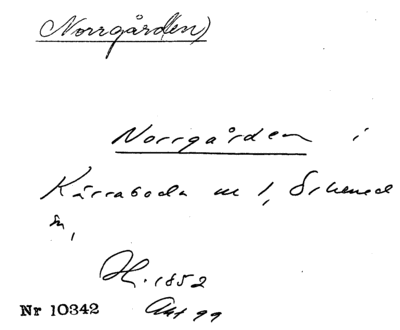 Norrgård(en)
Norrgården i
Kärraboda nr 1, Skened
sn,
H. 1852
Nr 10342 Akt 99